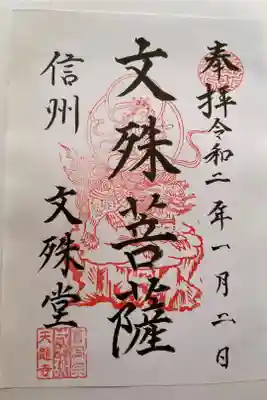 奉拝
令和二年一月二日
文殊菩薩
信州
文殊堂